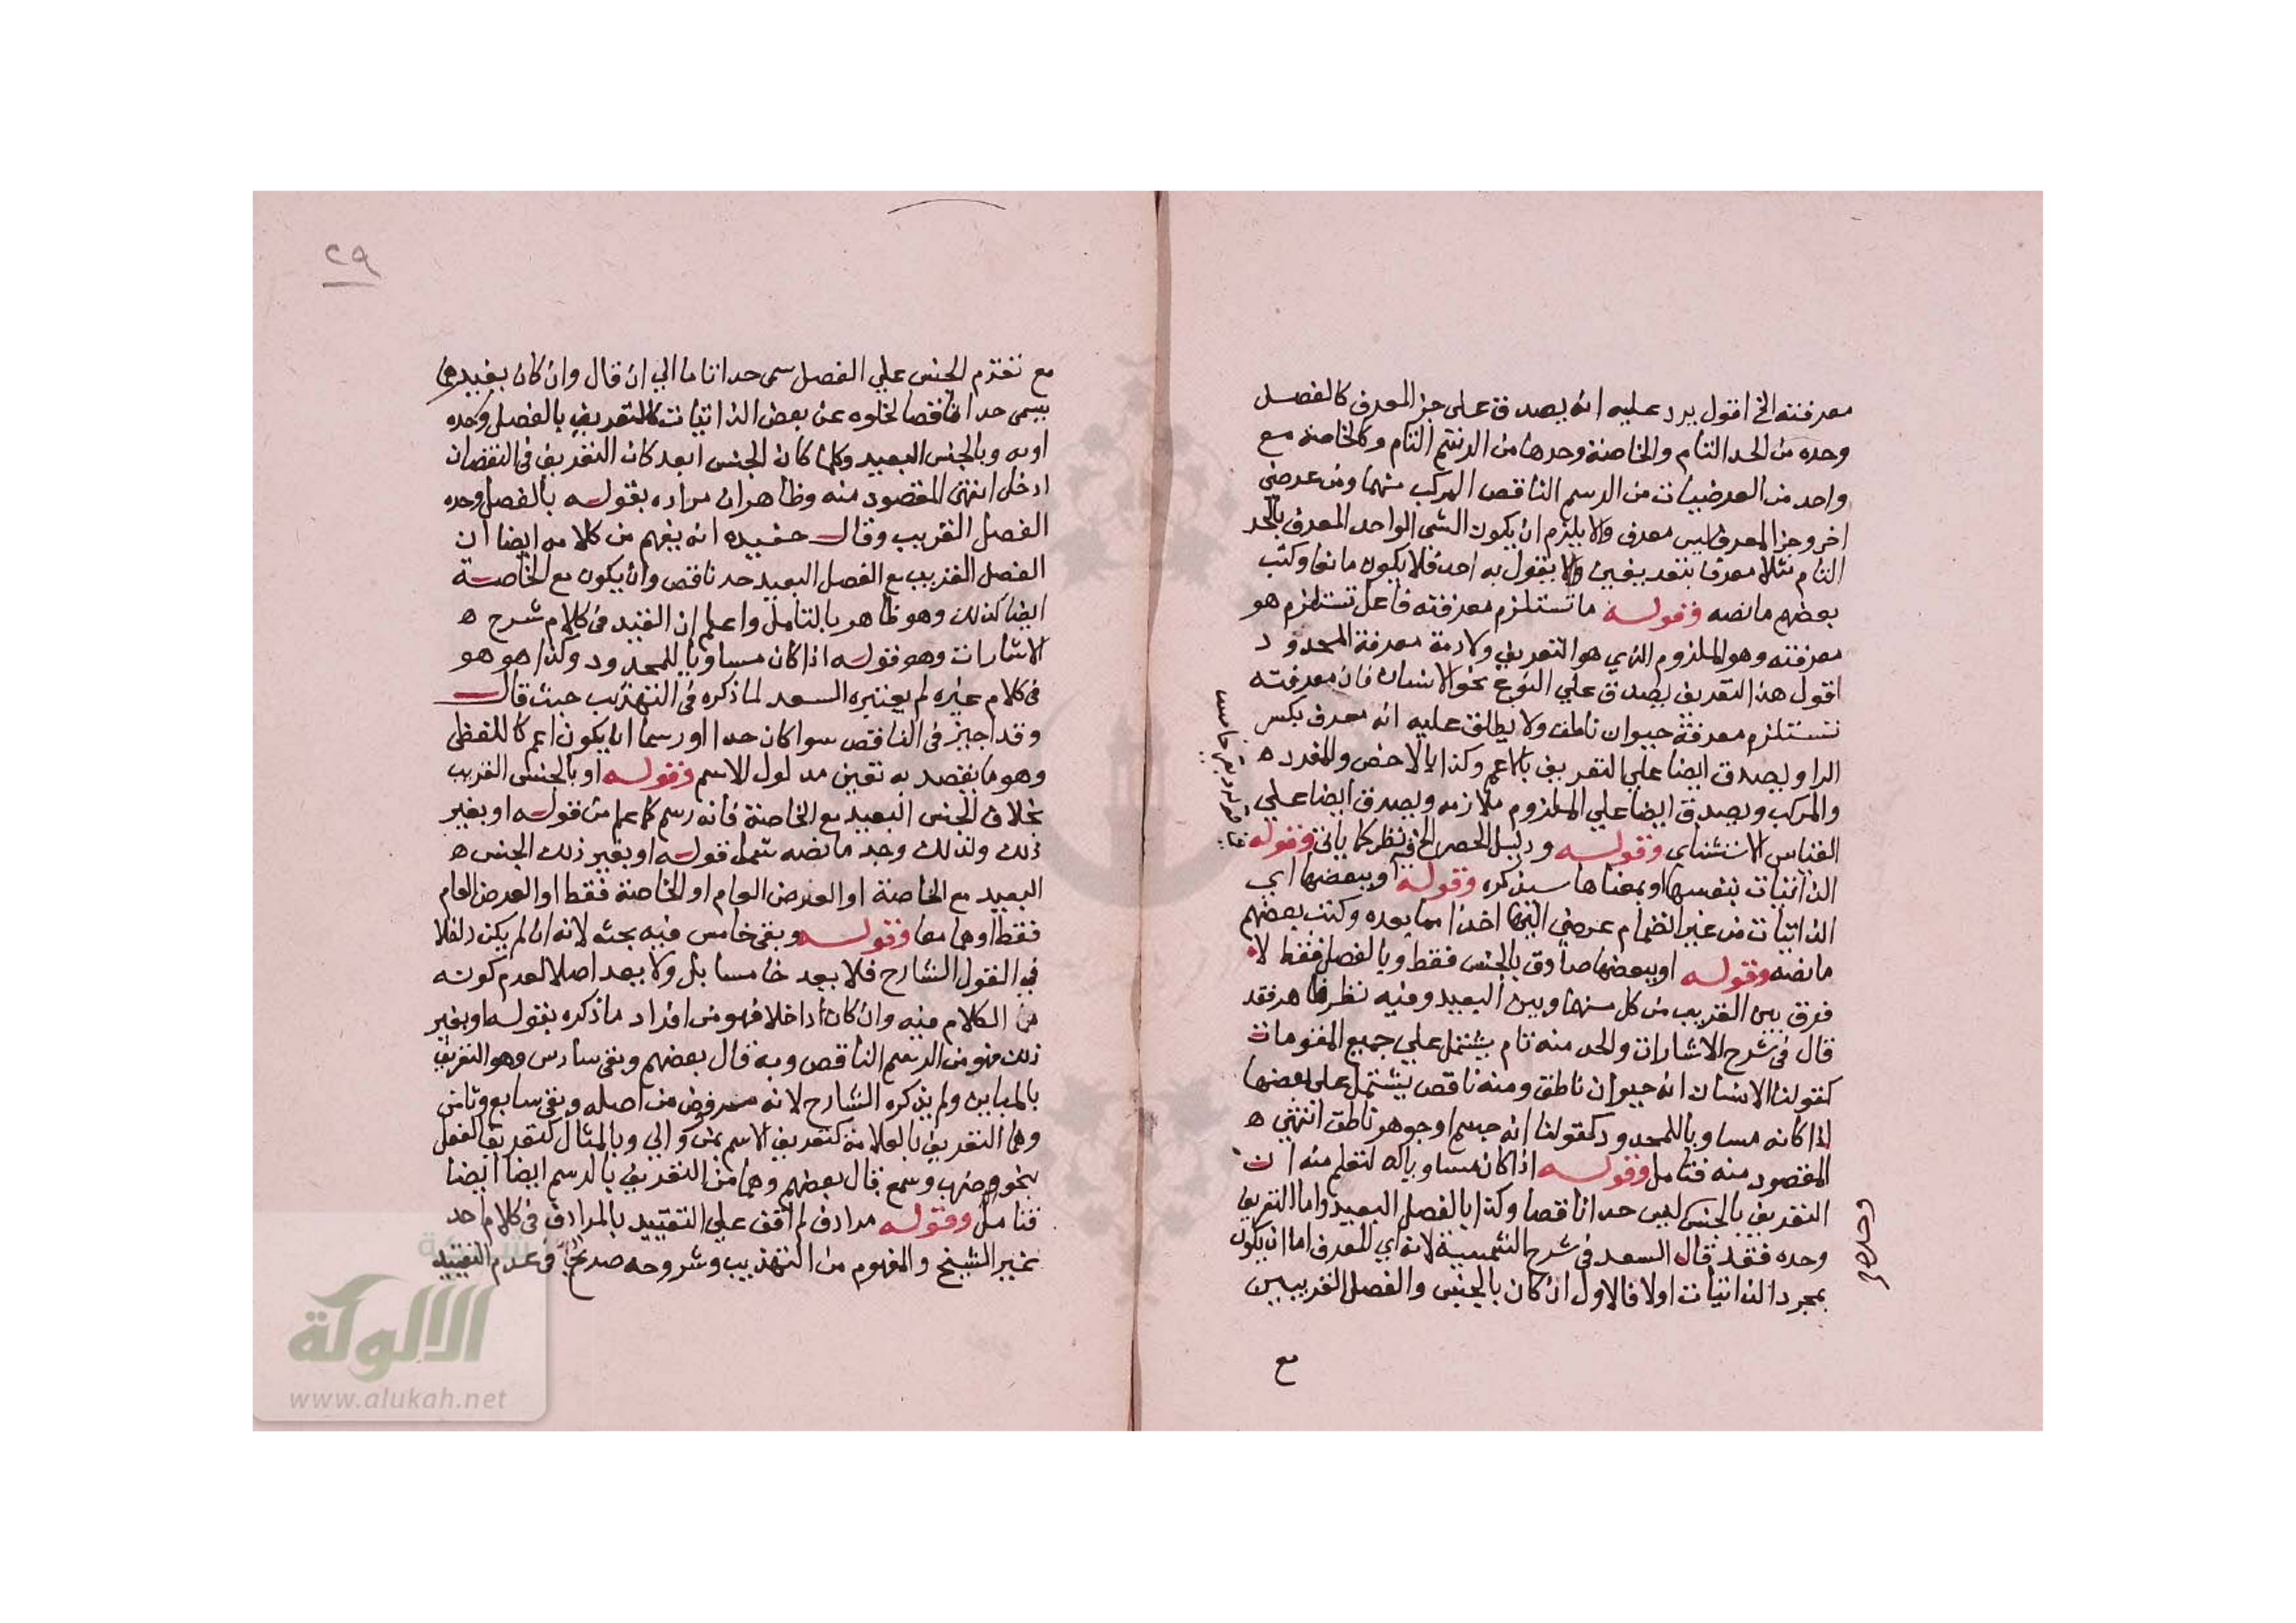 معرفته الخ اقول يرد عليه انه يصدق على جز المعرف كالفصل
وحده من الحد التام والخاصة وحدها من الرسم التام وكالخاصة مع
واحد من العرضيات من الرسم الناقص المركب منهما ومن عرضي
اخر وجز المعرف ليس معرف والا يلزم ان يكون الشي الواحد المعرف بالحد
التام مثلا معرفا بتعريفين ولا يقول به احد فلا يكون مانعا وكتب
بعضهم مانصه وقوله ما تستلزم معرفته فاعل تستلزم هو
معرفته وهو الملزوم الذي هو التعريف ولازمة معرفة المحدود
اقول هذا التعريف يصدق علي النوع نحو الانسان فان معرفته
تستلزم معرفة حيوان ناطق ولا يطلق عليه انه معرف بكسر
الرا ويصدق ايضا علي التعريف بالاعم وكذا بالاخص والمفرد ه
والمركب ويصدق ايضا علي الملزوم ملازمه ويصدق ايضا علي
القياس الاستثناي وقوله ودليل الحصر الخ فيه نظر كما ياتي وقوله
الذاتيات بنفسها او بمعناها سيذكره وقوله او ببعضها اي
الذاتيات من غير انضمام عرضي اليها اخذا مما بعده وكتب بعضهم
مانصه وقوله او ببعضها صادق بالجنس فقط وبالفصل فقط لا
فرق بين القريب من كل منهما وبين البعيد وفيه نظر ظاهر فقد
قال في شرح الاشارات والحد منه تام يشتمل علي جميع المقومات
كقولنا الانسان انه حيوان ناطق ومنه ناقص يشتمل على بعضها
اذا كانه مساويا للمحدود كقولنا انه جسم او جوهر ناطق انتهي ه
المقصود منه فتامل وقوله اذا كان مساويا له لتعلم منه ان
التعريف بالجنس ليس حدا ناقصا وكذا بالفصل البعيد واما التعريف
وحده فقد قال السعد في شرح الشمسية لانه اي المعرف اما ان يكون
بمجرد الذاتيات اولا فالاول ان كان بالجنس والفصل القريبين
مع
٢٩
مع تقدم الجنس علي الفصل سمى حدا تاما الي ان قال وان كان بغيرهما
يسمى حدا ناقصا لخلوه عن بعض الذاتيات كالتعريف بالفصل وحده
او به وبالجنس البعيد وكلما كان الجنس ابعد كان التعريف في النقصان
ادخل انتهى المقصود منه وظاهر ان مراده بقوله بالفصل وحده
الفصل القريب وقال حفيده انه يفهم من كلامه ايضا ان
الفصل القريب مع الفصل البعيد حد ناقص وان يكون مع الخاصة
ايضا كذلك وهو ظاهر بالتامل واعلم ان القيد في كلام شرح ه
الاشارات وهو قوله اذا كان مساويا للمحدود وكذا هو هو
في كلام غيره لم يعتبره السعد لما ذكره في التهذيب حيث قال
وقد اجيز في الناقص سوا كان حدا او رسما ان يكون اعم كاللفظي
وهو ما يقصد به تعين مدلول الاسم وقوله او بالجنس القريب
بخلاف الجنس البعيد مع الخاصة فانه رسم كما علم من قوله او بغير
ذلك ولذلك وجد مانصه شمل قوله او بغير ذلك الجنس ه
البعيد مع الخاصة او العرض العام او الخاصة فقط او العرض العام
فقط او هما معا وقوله وبقى خامس فيه بحث لانه ان لم يكن داخلا
في القول الشارح فلا يعد خامسا بل ولا يعد اصلا لعدم كونه
من الكلام فيه وان كان داخلا فهو من افراد ما ذكره بقوله او بغير
ذلك فهو من الرسم الناقص وبه قال بعضهم وبقى سادس وهو التعريف
بالمباين ولم يذكره الشارح لانه مرفوض من اصله وبقى سابع وثامن
وهما التعريف بالعلامة كتعريف الاسم بمن والي وبالمثال كتعريف الفعل
بنحو ضرب وسمع قال بعضهم وهما من التعريف بالرسم ايضا ايضا
فتامل وقوله مرادف لم اقف علي التقييد بالمرادف في كلام احد
غير الشيخ والمفهوم من التهذيب وشروحه في عدم التقييد
الالوكة
www.alukah.net